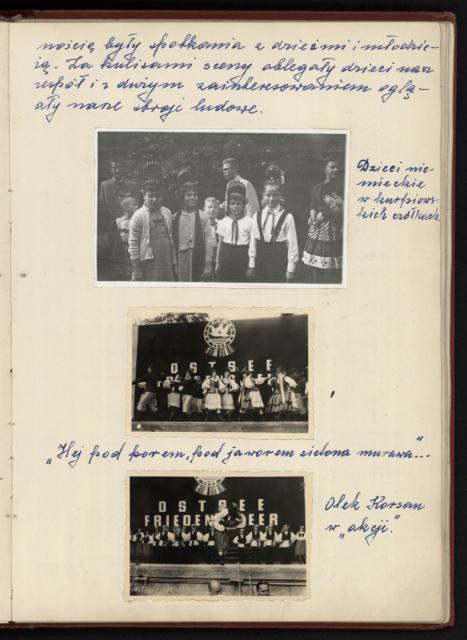 nością były spotkania z dziećmi i młodzie-
ią. Za kulisami sceny oblegały dzieci nasz
zespół i z dużym zainteresowaniem oglą-
ały nasze stroje ludowe.
Dzieci nie-
mieckie
w kurpiows-
kich czółkach
OSTSEE
"Hej pod borem, pod jaworem zielona murawa"...
OSTSEE
FRIEDEN MEER
Olek Korsan
w "akcji."